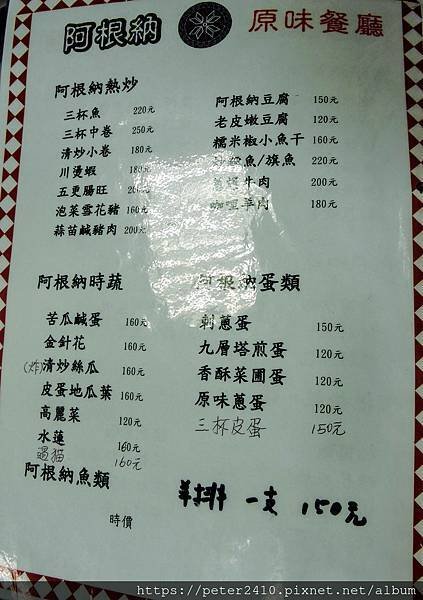 阿根納 原味餐廳
阿根納熱炒
三杯魚 220元
三杯中卷 250元
清炒小卷 180元
川燙蝦 180元
五更腸旺 200元
泡菜雪花豬 160元
蒜苗鹹豬肉 200元
阿根納豆腐 150元
老皮嫩豆腐 120元
糯米椒小魚干 160元
魚/旗魚 220元
牛肉 200元
咖哩羊肉 180元
阿根納時蔬
苦瓜鹹蛋 160元
金針花 160元
(炸)清炒絲瓜 160元
皮蛋地瓜葉 160元
高麗菜 120元
水蓮 160元
過貓 160元
阿根納魚類
時價
阿根納蛋類
刺蔥蛋 150元
九層塔煎蛋 120元
香酥菜圃蛋 120元
原味蔥蛋 120元
三杯皮蛋 150元
羊排 一支 150元
https://peter2410.pixnet.net/album